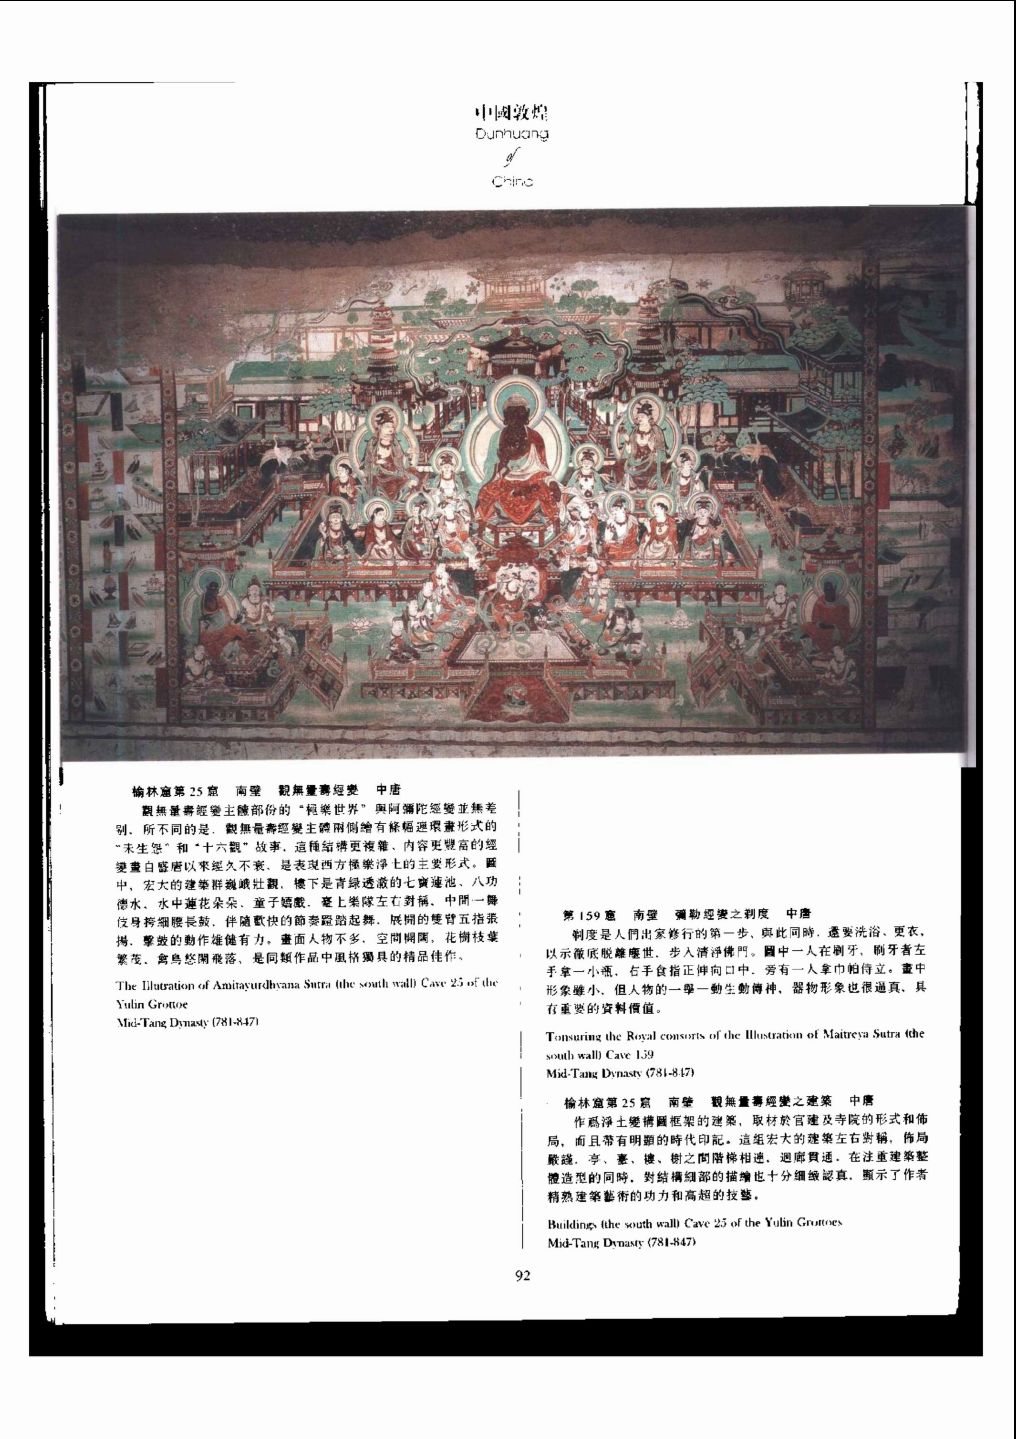 中國敦煌
Dunhuang
of
China
榆林窟第25窟　南壁　觀無量壽經變　中唐
觀無量壽經變主體部份的“極樂世界”與阿彌陀經變並無差
別．所不同的是．觀無量壽經變主體兩側繪有條幅連環畫形式的
“未生怨”和“十六觀”故事．這種結構更複雜、內容更豐富的經
變畫自盛唐以來經久不衰．是表現西方極樂淨土的主要形式。圖
中．宏大的建築群巍峨壯觀．樓下是青綠透澈的七寶蓮池、八功
德水．水中蓮花朵朵．童子嬉戲．臺上樂隊左右對稱．中間一舞
伎身挎細腰長鼓．伴隨歡快的節奏蹬踏起舞．展開的雙臂五指張
揚．擊鼓的動作雄健有力。畫面人物不多．空間開闊．花樹枝葉
繁茂．禽鳥悠閑飛落．是同類作品中風格獨具的精品佳作。
The Illutration of Amitayurdhyana Sutra (the south wall) Cave 25 of the
Yulin Grottoe
Mid-Tang Dynasty (781-847)
第159窟　南壁　彌勒經變之剃度　中唐
剃度是人們出家修行的第一步．與此同時．還要洗浴、更衣．
以示徹底脫離塵世．步入清淨佛門。圖中一人在刷牙．刷牙者左
手拿一小瓶．右手食指正伸向口中．旁有一人拿巾帕侍立。畫中
形象雖小．但人物的一舉一動生動傳神．器物形象也很逼真．具
有重要的資料價值。
Tonsuring the Royal consorts of the Illustration of Maitreya Sutra (the
south wall) Cave 159
Mid-Tang Dynasty (781-847)
榆林窟第25窟　南壁　觀無量壽經變之建築　中唐
作爲淨土變構圖框架的建築．取材於宮建及寺院的形式和佈
局．而且帶有明顯的時代印記。這組宏大的建築左右對稱．佈局
嚴謹．亭、臺、樓、榭之間階梯相連．迴廊貫通．在注重建築整
體造型的同時．對結構細部的描繪也十分細緻認真．顯示了作者
精熟建築藝術的功力和高超的技藝。
Buildings (the south wall) Cave 25 of the Yulin Grottoes
Mid-Tang Dynasty (781-847)
92